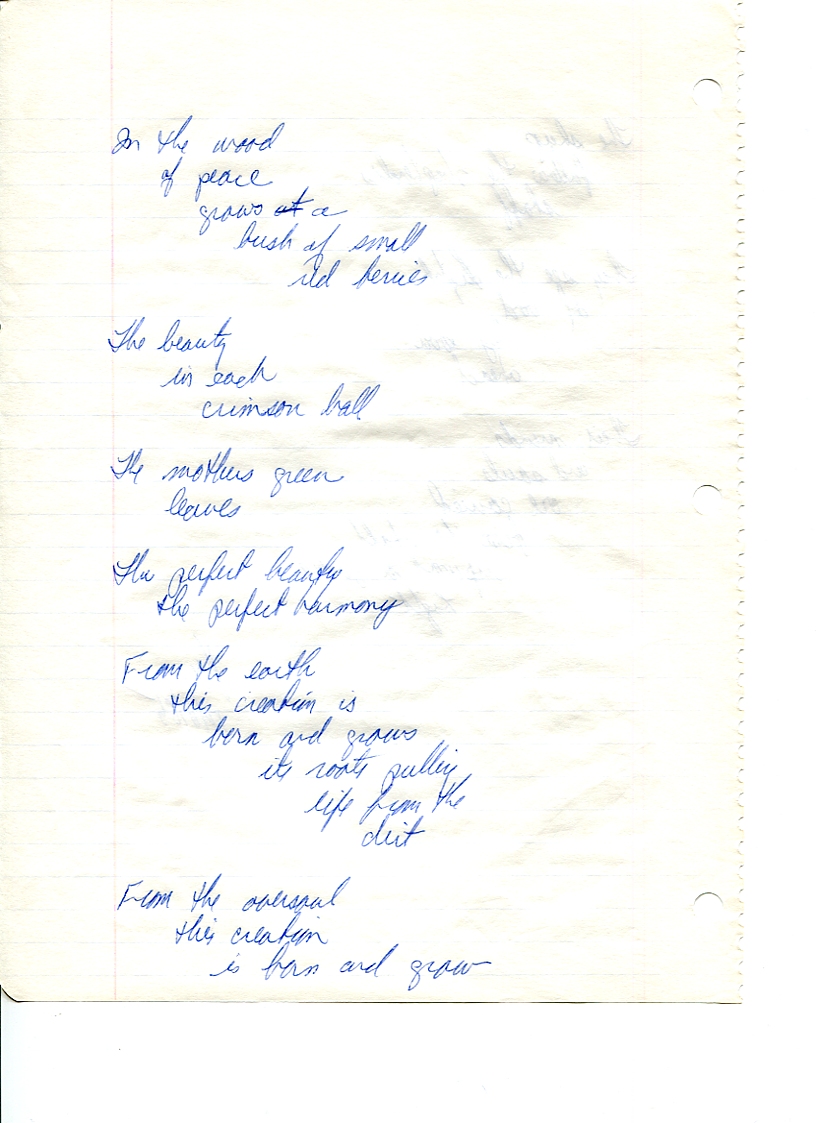 In the wood
of peace
grows at a
bush of small
red berries
The beauty
in each
crimson ball
The mothers green
leaves
The perfect beauty
the perfect harmony
From the earth
this creation is
born and grows
its roots pulling
life from the
dirt
From the oversoul
this creation
is born and grow